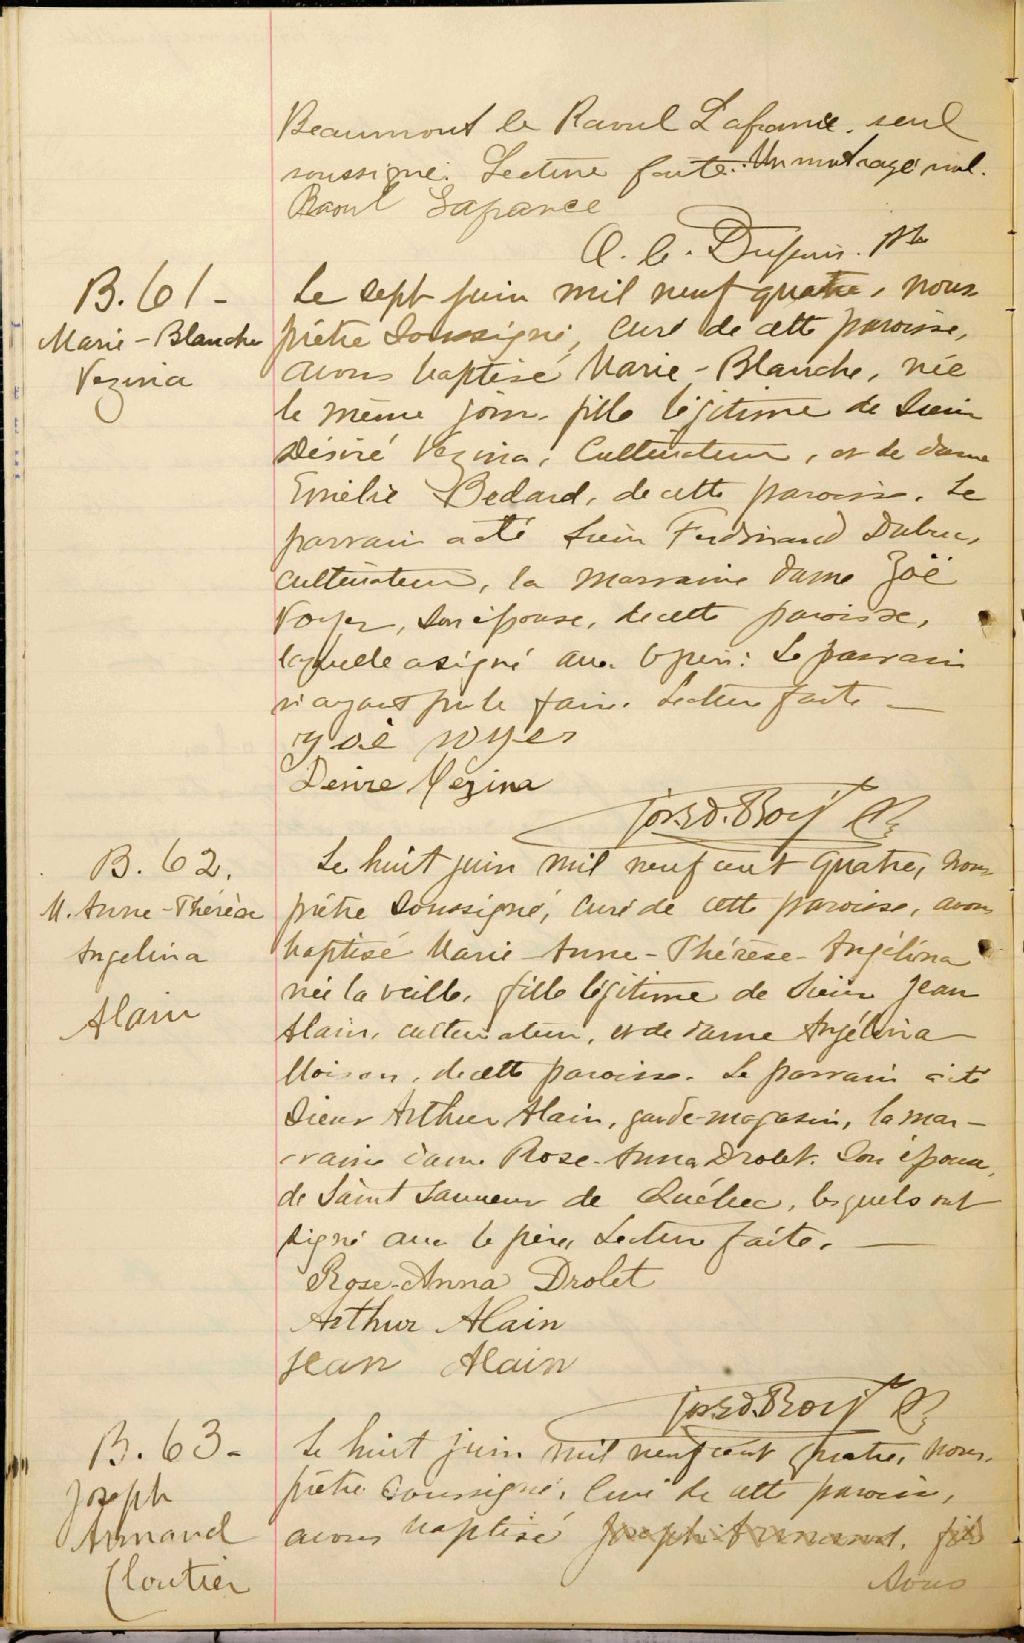 Beaumont le Raoul Lafrance. seul
soussigné. Lecture faite. Un mot rayé nul.
Raoul Lafrance
O. C. Dupuis. ptr
B. 61 -
Marie - Blanche
Vezina
Le sept juin mil neuf quatre, nous
prêtre soussigné, curé de cette paroisse,
avons baptisé Marie - Blanche, née
le même jour. fille légitime de Sieur
Désiré Vezina, Cultivateur, et de dame
Emélie Bedard, de cette paroisse. Le
parrain a été Sieur Ferdinand Dubuc,
cultivateur, la marraine dame Zoë
Voyer, son épouse, de cette paroisse,
laquelle a signé avec le père: Le parrain
n'ayant pu le faire. Lecture faite —
Zoé Voyer
Desire Vézina
Jos. Ed. Roy
B. 62.
M. Anne - Thérèse
Angelina
Alain
Le huit juin mil neuf cent quatre, nous
prêtre soussigné, curé de cette paroisse, avons
baptisé Marie - Anne - Thérèse - Angélina
née la veille, fille légitime de Sieur Jean
Alain, cultivateur, et de dame Angélina
Moisan, de cette paroisse. Le parrain a été
Sieur Arthur Alain, garde-magasin, la mar-
raine dame Rose-Anna Drolet. Son épouse,
de Saint Sauveur de Québec, lesquels ont
signé avec le père, Lecture faite. —
Rose-Anna Drolet
Arthur Alain
Jean Alain
Jos. Ed. Roy
B. 63 -
Joseph
Armand
Cloutier
Le huit juin mil neuf cent quatre, nous
prêtre soussigné, curé de cette paroisse,
avons baptisé Joseph Armand, fils
sous